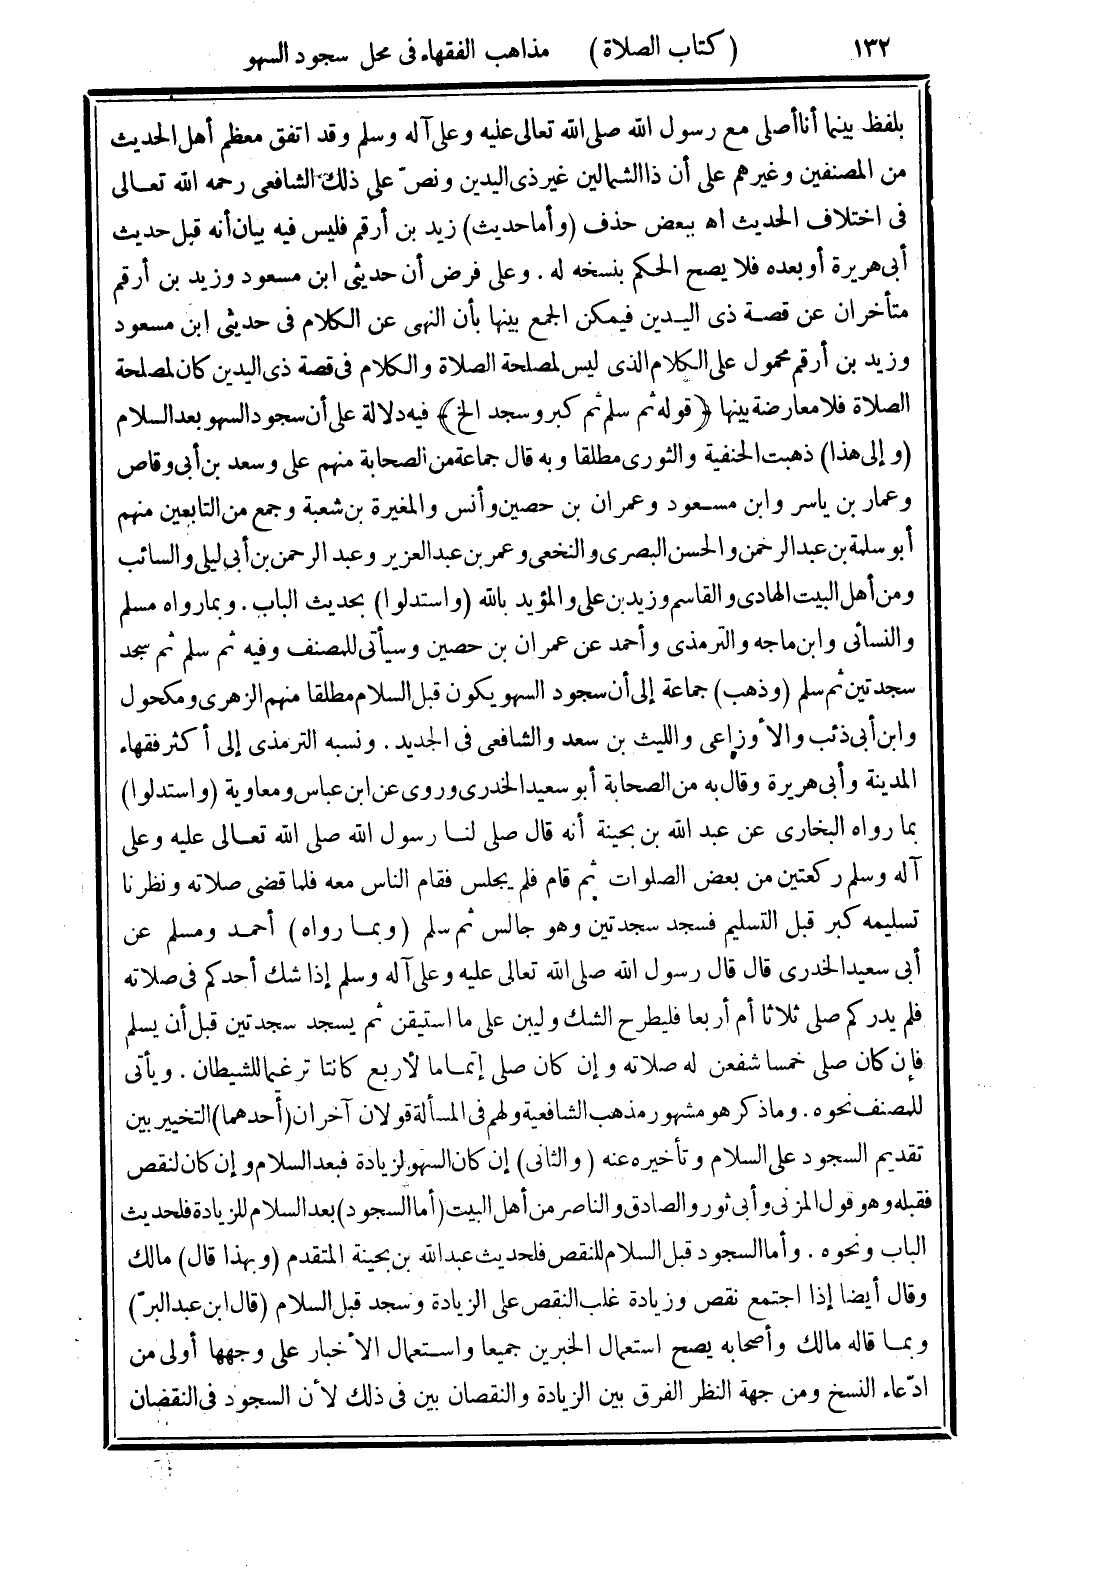 ١٣٢ (كتاب الصلاة) مذاهب الفقهاء فى محل سجود السهو
بلفظ بينما أنا أصلى مع رسول الله صلى الله تعالى عليه وعلى آله وسلم وقد اتفق معظم أهل الحديث
من المصنفين وغيرهم على أن ذا الشمالين غير ذى اليدين ونصّ على ذلك الشافعى رحمه الله تعالى
فى اختلاف الحديث اه ببعض حذف (وأما حديث) زيد بن أرقم فليس فيه بيان أنه قبل حديث
أبى هريرة أو بعده فلا يصح الحكم بنسخه له . وعلى فرض أن حديثى ابن مسعود وزيد بن أرقم
متأخران عن قصة ذى اليدين فيمكن الجمع بينها بأن النهى عن الكلام فى حديثى ابن مسعود
وزيد بن أرقم محمول على الكلام الذى ليس لمصلحة الصلاة والكلام فى قصة ذى اليدين كان لمصلحة
الصلاة فلا معارضة بينها ﴿قوله ثم سلم ثم كبر وسجد الخ﴾ فيه دلالة على أن سجود السهو بعد السلام
(وإلى هذا) ذهبت الحنفية والثورى مطلقا وبه قال جماعة من الصحابة منهم على وسعد بن أبى وقاص
وعمار بن ياسر وابن مسعود وعمران بن حصين وأنس والمغيرة بن شعبة وجمع من التابعين منهم
أبو سلمة بن عبد الرحمن والحسن البصرى والنخعى وعمر بن عبد العزيز وعبد الرحمن بن أبى ليلى والسائب
ومن أهل البيت الهادى والقاسم وزيد بن على والمؤيد بالله (واستدلوا) بحديث الباب . وبما رواه مسلم
والنسائى وابن ماجه والترمذى وأحمد عن عمران بن حصين وسيأتى للمصنف وفيه ثم سلم ثم سجد
سجدتين ثم سلم (وذهب) جماعة إلى أن سجود السهو يكون قبل السلام مطلقا منهم الزهرى ومكحول
وابن أبى ذئب والأوزاعى والليث بن سعد والشافعى فى الجديد . ونسبه الترمذى إلى أكثر فقهاء
المدينة وأبى هريرة وقال به من الصحابة أبو سعيد الخدرى وروى عن ابن عباس ومعاوية (واستدلوا)
بما رواه البخارى عن عبد الله بن بحينة أنه قال صلى لنا رسول الله صلى الله تعالى عليه وعلى
آله وسلم ركعتين من بعض الصلوات ثم قام فلم يجلس فقام الناس معه فلما قضى صلاته ونظرنا
تسليمه كبر قبل التسليم فسجد سجدتين وهو جالس ثم سلم (وبما رواه) أحمد ومسلم عن
أبى سعيد الخدرى قال قال رسول الله صلى الله تعالى عليه وعلى آله وسلم إذا شك أحدكم فى صلاته
فلم يدر كم صلى ثلاثا أم أربعا فليطرح الشك وليبن على ما استيقن ثم يسجد سجدتين قبل أن يسلم
فإن كان صلى خمسا شفعن له صلاته وإن كان صلى إتماما لأربع كانتا ترغيما للشيطان . ويأتى
للمصنف نحوه . وما ذكر هو مشهور مذهب الشافعية ولهم فى المسألة قولان آخران (أحدهما) التخيير بين
تقديم السجود على السلام وتأخيره عنه (والثانى) إن كان السهو لزيادة فبعد السلام وإن كان لنقص
فقبله وهو قول المزنى وأبى ثور والصادق والناصر من أهل البيت (أما السجود) بعد السلام للزيادة فلحديث
الباب ونحوه . وأما السجود قبل السلام للنقص فلحديث عبد الله بن بحينة المتقدم (وبهذا قال) مالك
وقال أيضا إذا اجتمع نقص وزيادة غلب النقص على الزيادة وسجد قبل السلام (قال ابن عبد البرّ)
وبما قاله مالك وأصحابه يصح استعمال الخبرين جميعا واستعمال الأخبار على وجهها أولى من
ادّعاء النسخ ومن جهة النظر الفرق بين الزيادة والنقصان بين فى ذلك لأن السجود فى النقصان